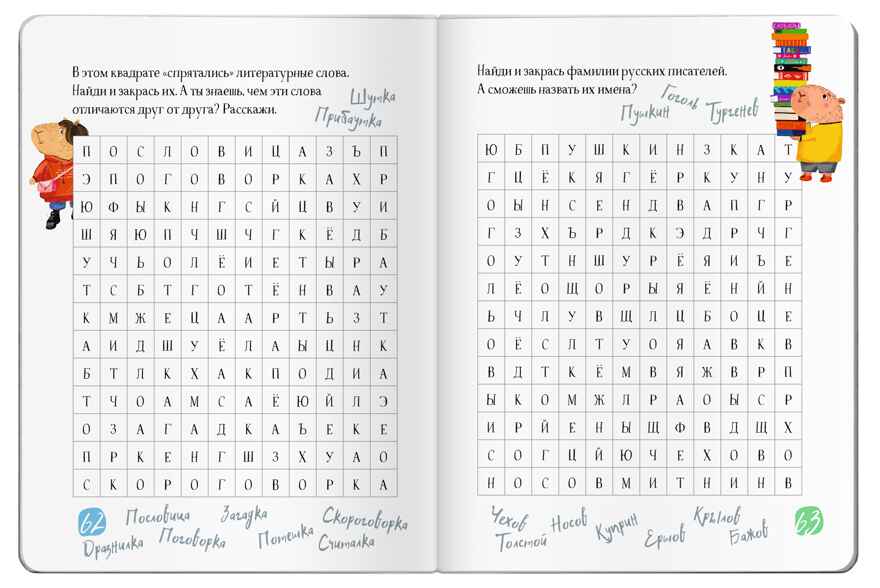 В этом квадрате «спрятались» литературные слова.
Найди и закрась их. А ты знаешь, чем эти слова
отличаются друг от друга? Расскажи.
Шутка
Прибаутка
П О С Л О В И Ц А З Ъ П
Э П О Г О В О Р К А Х Р
Ю Ф Ы К Н Г С Й Ц В У И
Ш Я Ю П Ч Ш Ч Г К Ё Д Б
У Ч Ь О Л Ё И Е Т Ы Р А
Т С Б Т Г О Т Ё Н В А У
К М Ж Е Ц А А Р Т Ь З Т
А И Д Ш У Ё Л А Ы Ц Н К
Б Т Л К Х А К П О Д И А
Т Ч О А М С А Ё Ю Й Л Э
О З А Г А Д К А Ъ Е К Е
П Р К Е Н Г Ш З Х У А О
С К О Р О Г О В О Р К А
62
Пословица Загадка Скороговорка
Дразнилка Поговорка Потешка Считалка
Найди и закрась фамилии русских писателей.
А сможешь назвать их имена?
Гоголь
Пушкин Тургенев
Ю Б П У Ш К И Н З К А Т
Г Ц Ё К Я Г Ё Р К У Н У
О Ы Н С Е Н Д В А П Г Р
Г З Х Ъ Р Д К Э Д Р Ч Г
О У Т Н Ш У Р Ё Я И Ъ Е
Л Ё О Щ О Р Ы Я Ё Н Й Н
Ь Ч Л У В Щ Л Ц Б О Ц Е
О Ё С Л Т У О Я А В К В
В Д Т К Ё М В Я Ж В Р П
Ы К О М Ж Л Р А О Ы С Р
И Р Й Е Н Ы Щ Ф В Д Щ Х
С О Г Ц Й Ю Ч Е Х О В О
Н О С О В М И Т Н И Н В
Чехов Носов Куприн Крылов
Толстой Ершов Бажов
63